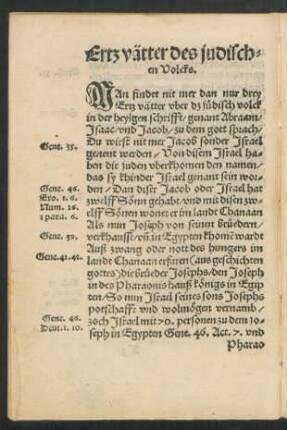 Ertz vätter des judisch-
en Volcks.
MAn findet nit mer dan nur drey
Ertz vätter vber dz jüdisch volck
in der heyligen schrifft / genant Abraam /
Isaac / vnd Jacob / zu dem gott sprach /
Gene. 35. Du wirst nit mer Jacob sonder Israel
genent werden / Von disem Israel ha
ben die juden vberkhomen den namen /
das sy khinder Israel genant sein wor
Gene. 46. den / Dan diser Jacob oder Israel hat
Exo. 1. 6. zwelff Sönn gehabt / vnd mit disen zw-
Num. 26. elff Sönnen wonet er im landt Chanaan
1 para. 6. Als nun Joseph von seinen brüedern /
Gene. 39. verkhaufft / vñ in Egypten khomē ward
Auß zwang oder nott des hungers im
Gene. 41. 42. landt Chanaan erfüren (aus geschichten
gottes) die brüeder Josephs / den Joseph
in des Pharaonis hauß königs in Egip
pten / So nun Israel seines sons Josephs
pottschafft vnd wolmögen vernamb /
Gene. 46. zoch Israel mit 70. personen zu dem jo-
Deut. 1. 10. seph in Egypten Gene. 46. Act. 7. vnd
Pharao